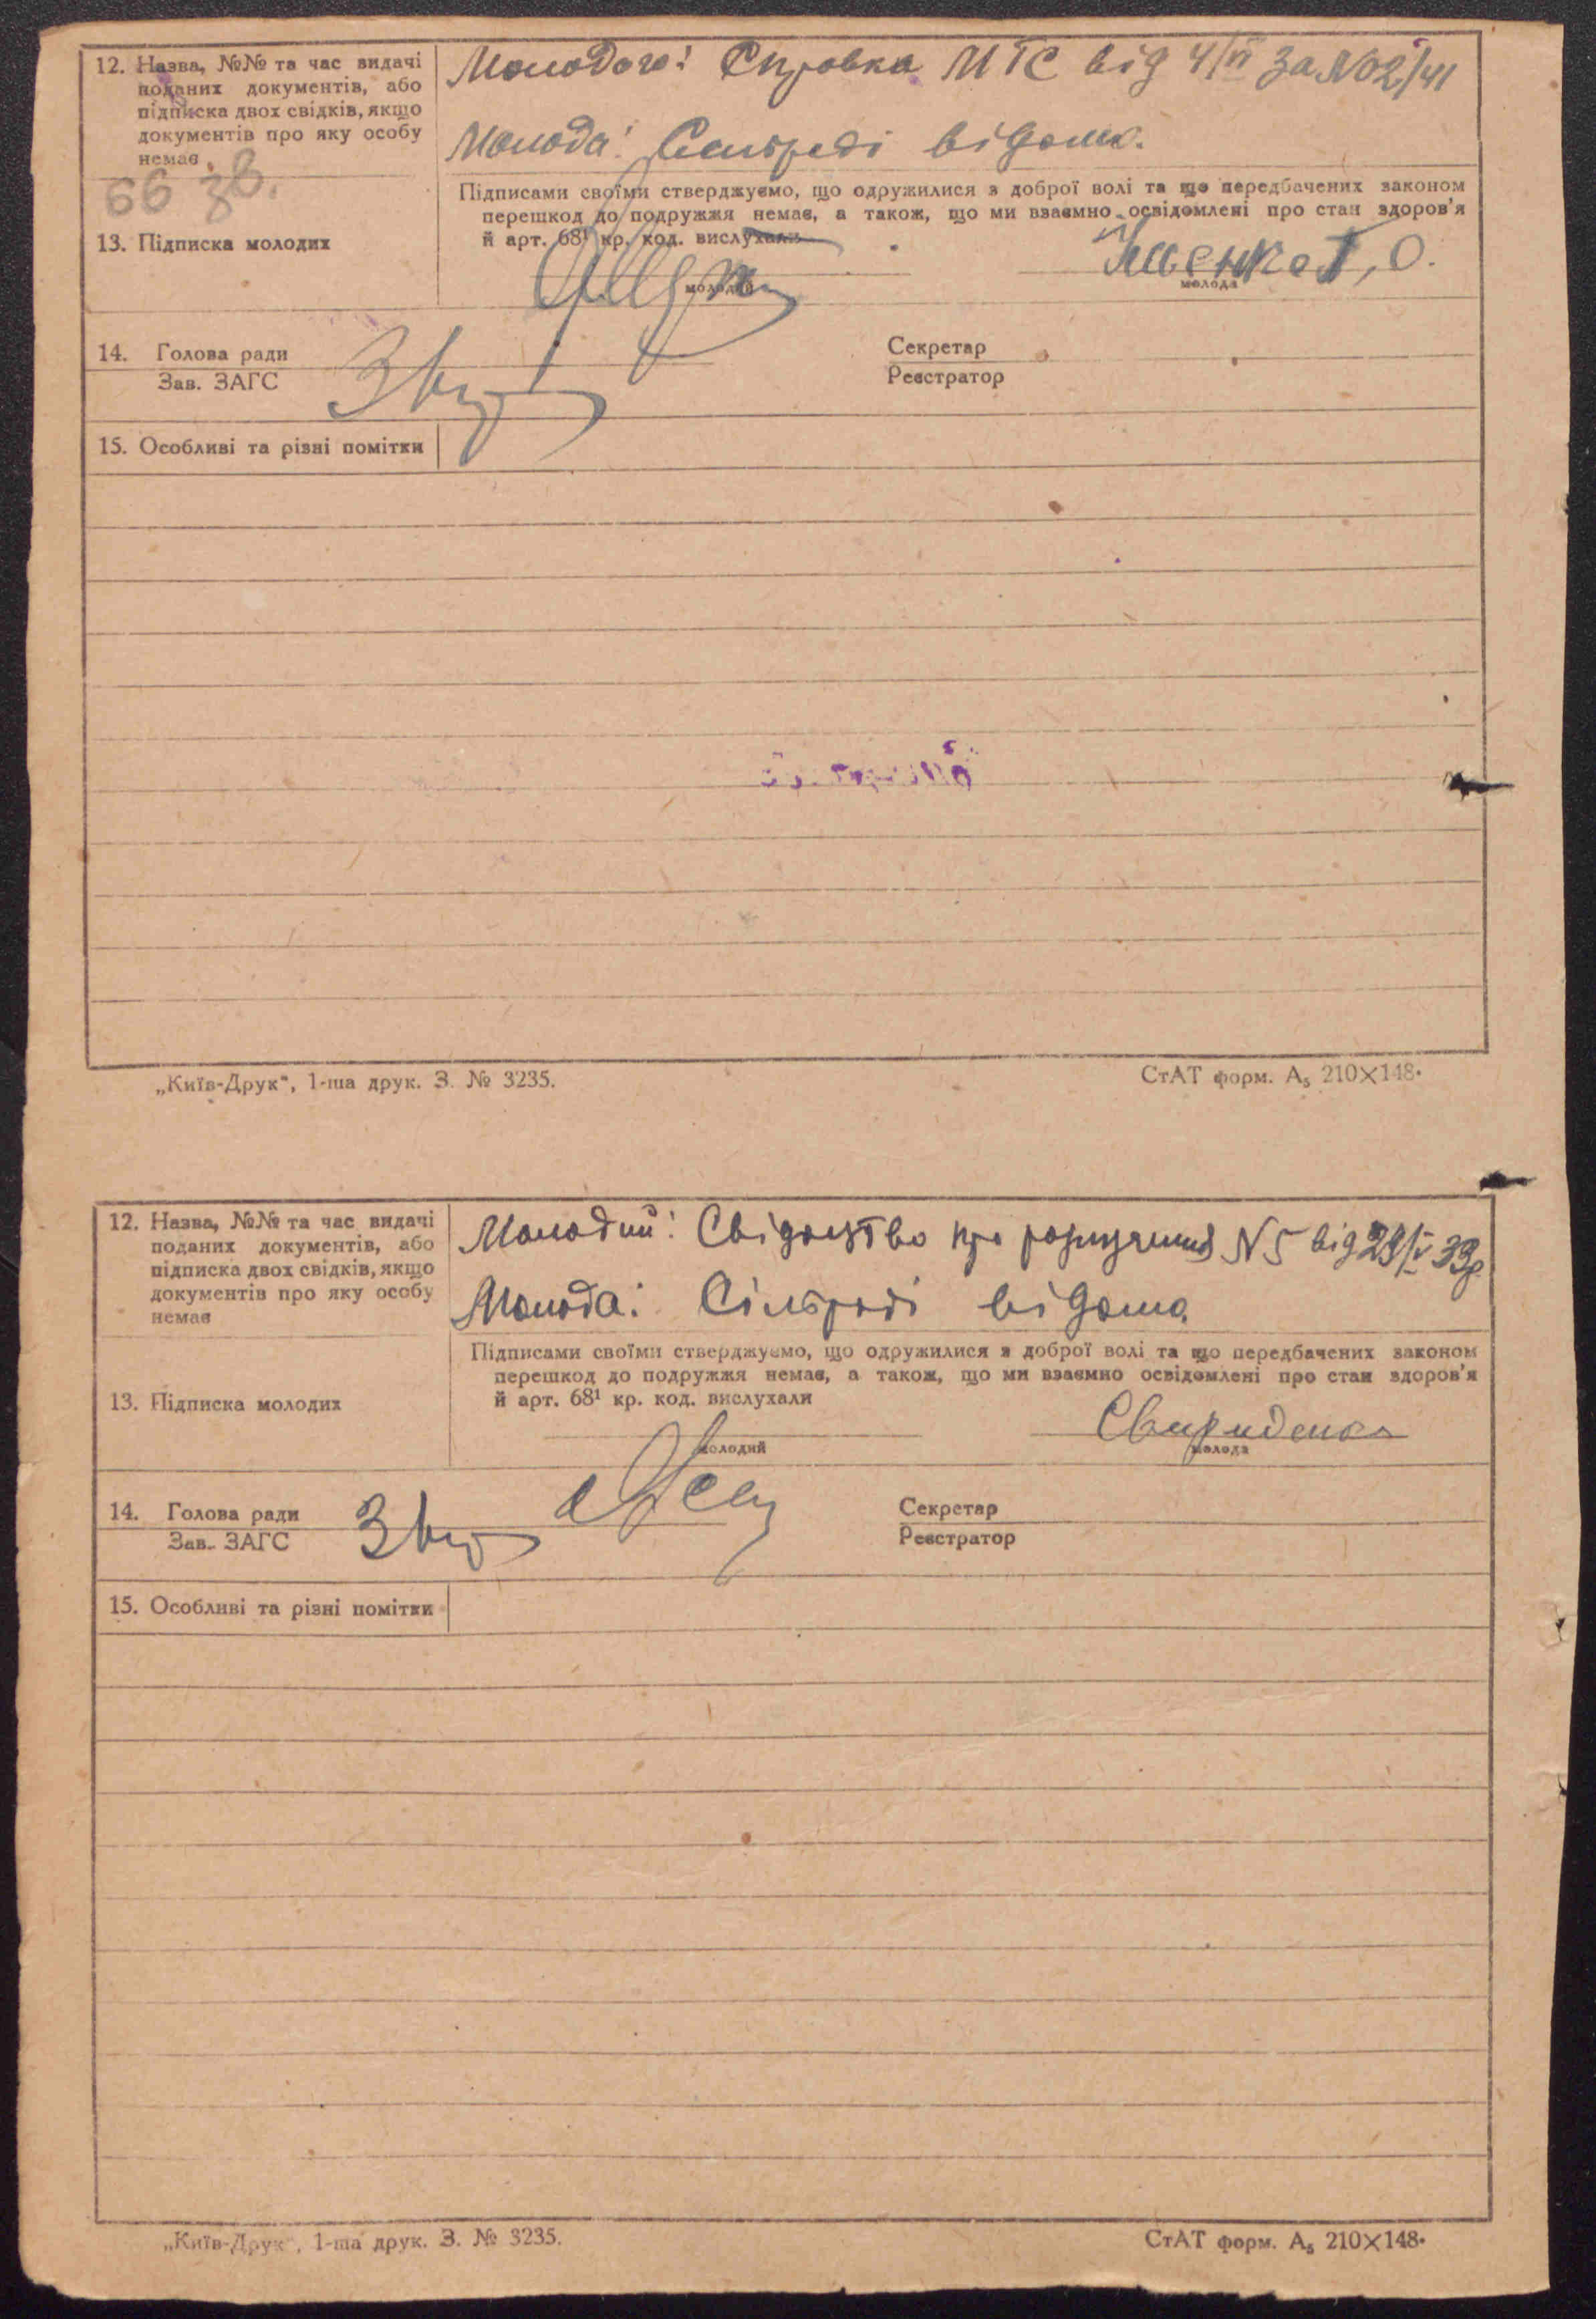 12. Назва, №№ та час видачі
поданих документів, або
підписка двох свідків, якщо
документів про яку особу
немає
Молодого: Справка МТС від 4/VI за №02/41
Молода: Сельраді відома.
66 зв.
13. Підписка молодих
Підписами своїми стверджуємо, що одружилися з доброї волі та що передбачених законом
перешкод до подружжя немає, а також, що ми взаємно освідомлені про стан здоров'я
й арт. 68¹ кр. код. вислухали
молодий
молода
14. Голова ради
Зав. ЗАГС
Секретар
Реєстратор
15. Особливі та різні помітки
„Київ-Друк“, 1-ша друк. З. № 3235.
СтАТ форм. А₅ 210×148.
12. Назва, №№ та час видачі
поданих документів, або
підписка двох свідків, якщо
документів про яку особу
немає
Молодий: Свідоцтво про розлучення N 5 від 29/V 33р
Молода: Сільраді відома
13. Підписка молодих
Підписами своїми стверджуємо, що одружилися з доброї волі та що передбачених законом
перешкод до подружжя немає, а також, що ми взаємно освідомлені про стан здоров'я
й арт. 68¹ кр. код. вислухали
Свириденко
молодий
молода
14. Голова ради
Зав. ЗАГС
Секретар
Реєстратор
15. Особливі та різні помітки
„Київ-Друк“, 1-ша друк. З. № 3235.
СтАТ форм. А₅ 210×148.